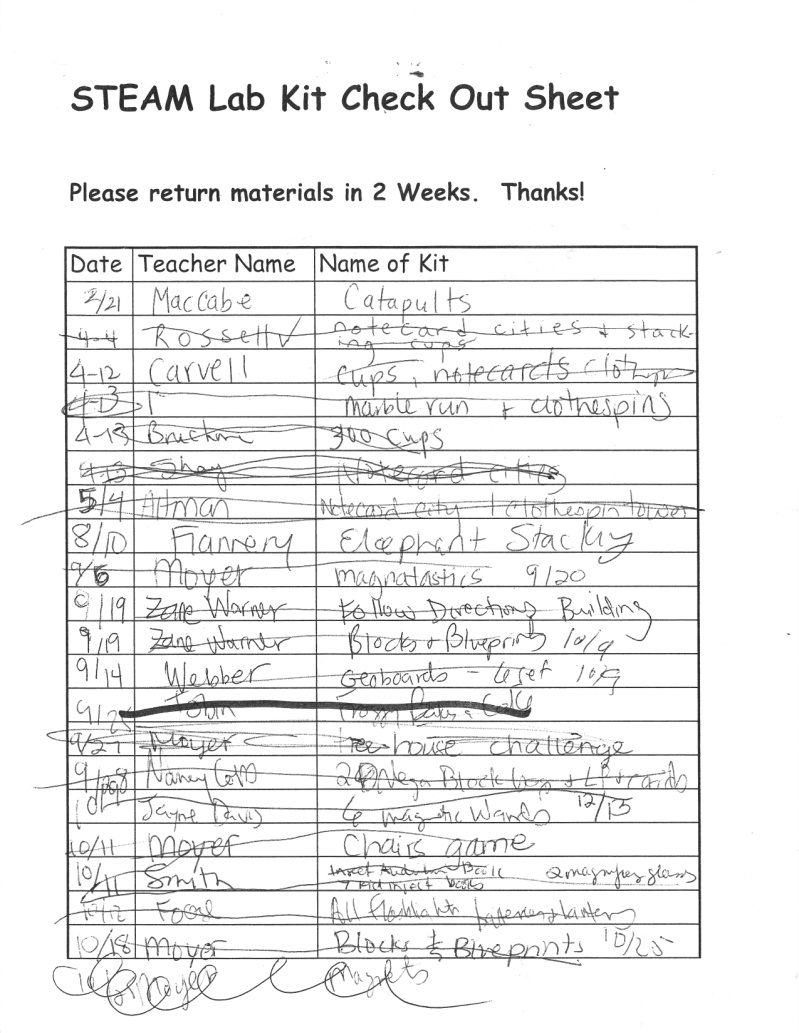 STEAM Lab Kit Check Out Sheet
Please return materials in 2 Weeks. Thanks!
Date Teacher Name Name of Kit
2/21 Maccabe Catapults
4-4 Rossell notecard cities + stack-
ing cups
4-12 Carvell cups, notecards
4-13 marble run + clothespins
4-13 300 cups
4-13 Shay Notecard cities
5/4 Altman Notecard city clothespin tower
8/10 Flannery Elephant Stacking
9/6 Moyer magnatastics 9/20
9/19 Zane Warner Follow Directions Building
9/19 Zane Warner Blocks + Blueprints 10/9
9/14 Webber Geoboards - set 10/9
9/25
9/27 Moyer tree house challenge
Nancy Block
Jayne Davis 6 magnetic Wands 12/13
10/11 Moyer Chairs game
10/11 Smith Insect Book
2 magnifying glass
All flashlights
10/18 Moyer Blocks & Blueprints 10/25
Moyer Magnets